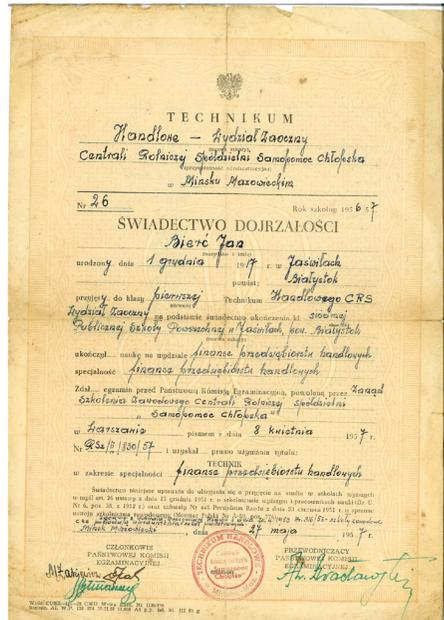 TECHNIKUM
Handlowe – Wydział Zaoczny
Centrali Rolniczej Spółdzielni Samopomoc Chłopska
w Mińsku Mazowieckim
Nr 26 Rok szkolny 1956/57
ŚWIADECTWO DOJRZAŁOŚCI
Bierć Jan
urodzony dnia 1 grudnia 1917 r. w Jaświłach
powiat: Białystok
przyjęty do klasy pierwszej Technikum Handlowego CRS
Wydział Zaoczny na podstawie świadectwa ukończenia kl. siódmej
Publicznej Szkoły Powszechnej w Jaświłach, pow. Białystok
ukończył naukę na wydziale finanse przedsiębiorstw handlowych
specjalność finanse przedsiębiorstw handlowych
Zdał egzamin przed Państwową Komisją Egzaminacyjną, powołaną przez Zarząd
Szkolenia Zawodowego Centrali Rolniczej Spółdzielni
„Samopomoc Chłopska"
w Warszawie pismem z dnia 8 kwietnia 1957 r.
Nr 830/57 i uzyskał prawo używania tytułu:
TECHNIK
w zakresie specjalności finanse przedsiębiorstw handlowych
Świadectwo niniejsze uprawnia do ubiegania się o przyjęcie na studia w szkołach wyższych
w myśl art. 36 ustawy z dnia 15 grudnia 1951 r. o szkolnictwie wyższym i pracownikach nauki (Dz. U.
Mińsk Mazowiecki dnia 27 maja 1957 r.
CZŁONKOWIE
PAŃSTWOWEJ KOMISJI
EGZAMINACYJNEJ
PRZEWODNICZĄCY
PAŃSTWOWEJ KOMISJI
EGZAMINACYJNEJ
TECHNIKUM HANDLOWE